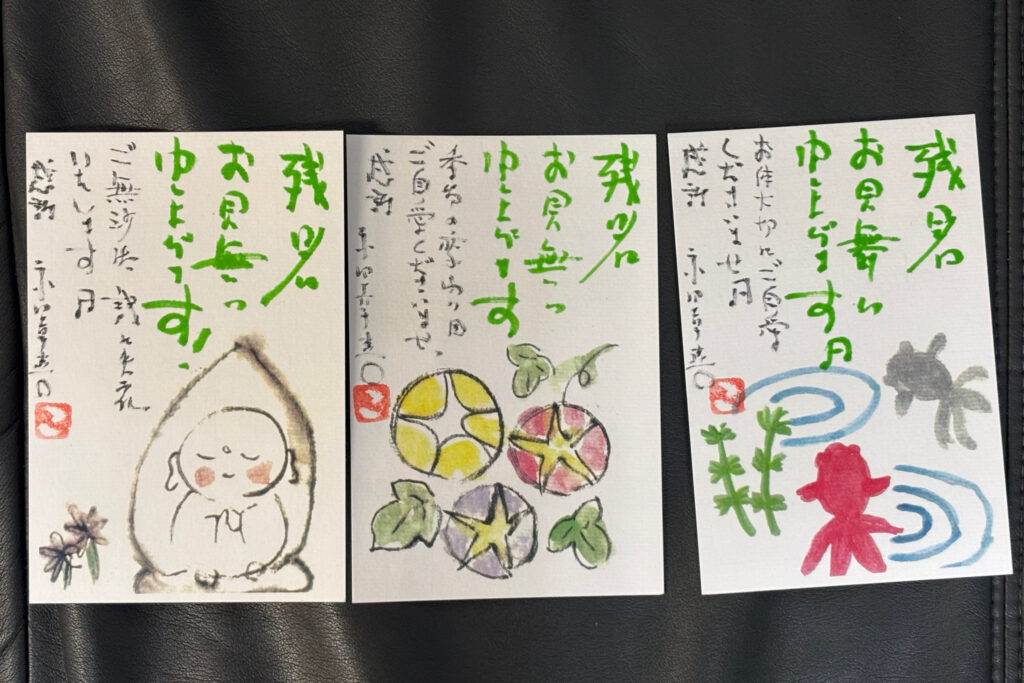 残暑
お見舞い
申し上げます!
ご無沙汰
いたします
感謝
残暑
お見舞い
申し上げます
季節の変わり目
ご自愛くださいませ。
感謝
残暑
お見舞い
申し上げます
お体大切にご自愛
くださいませ
感謝